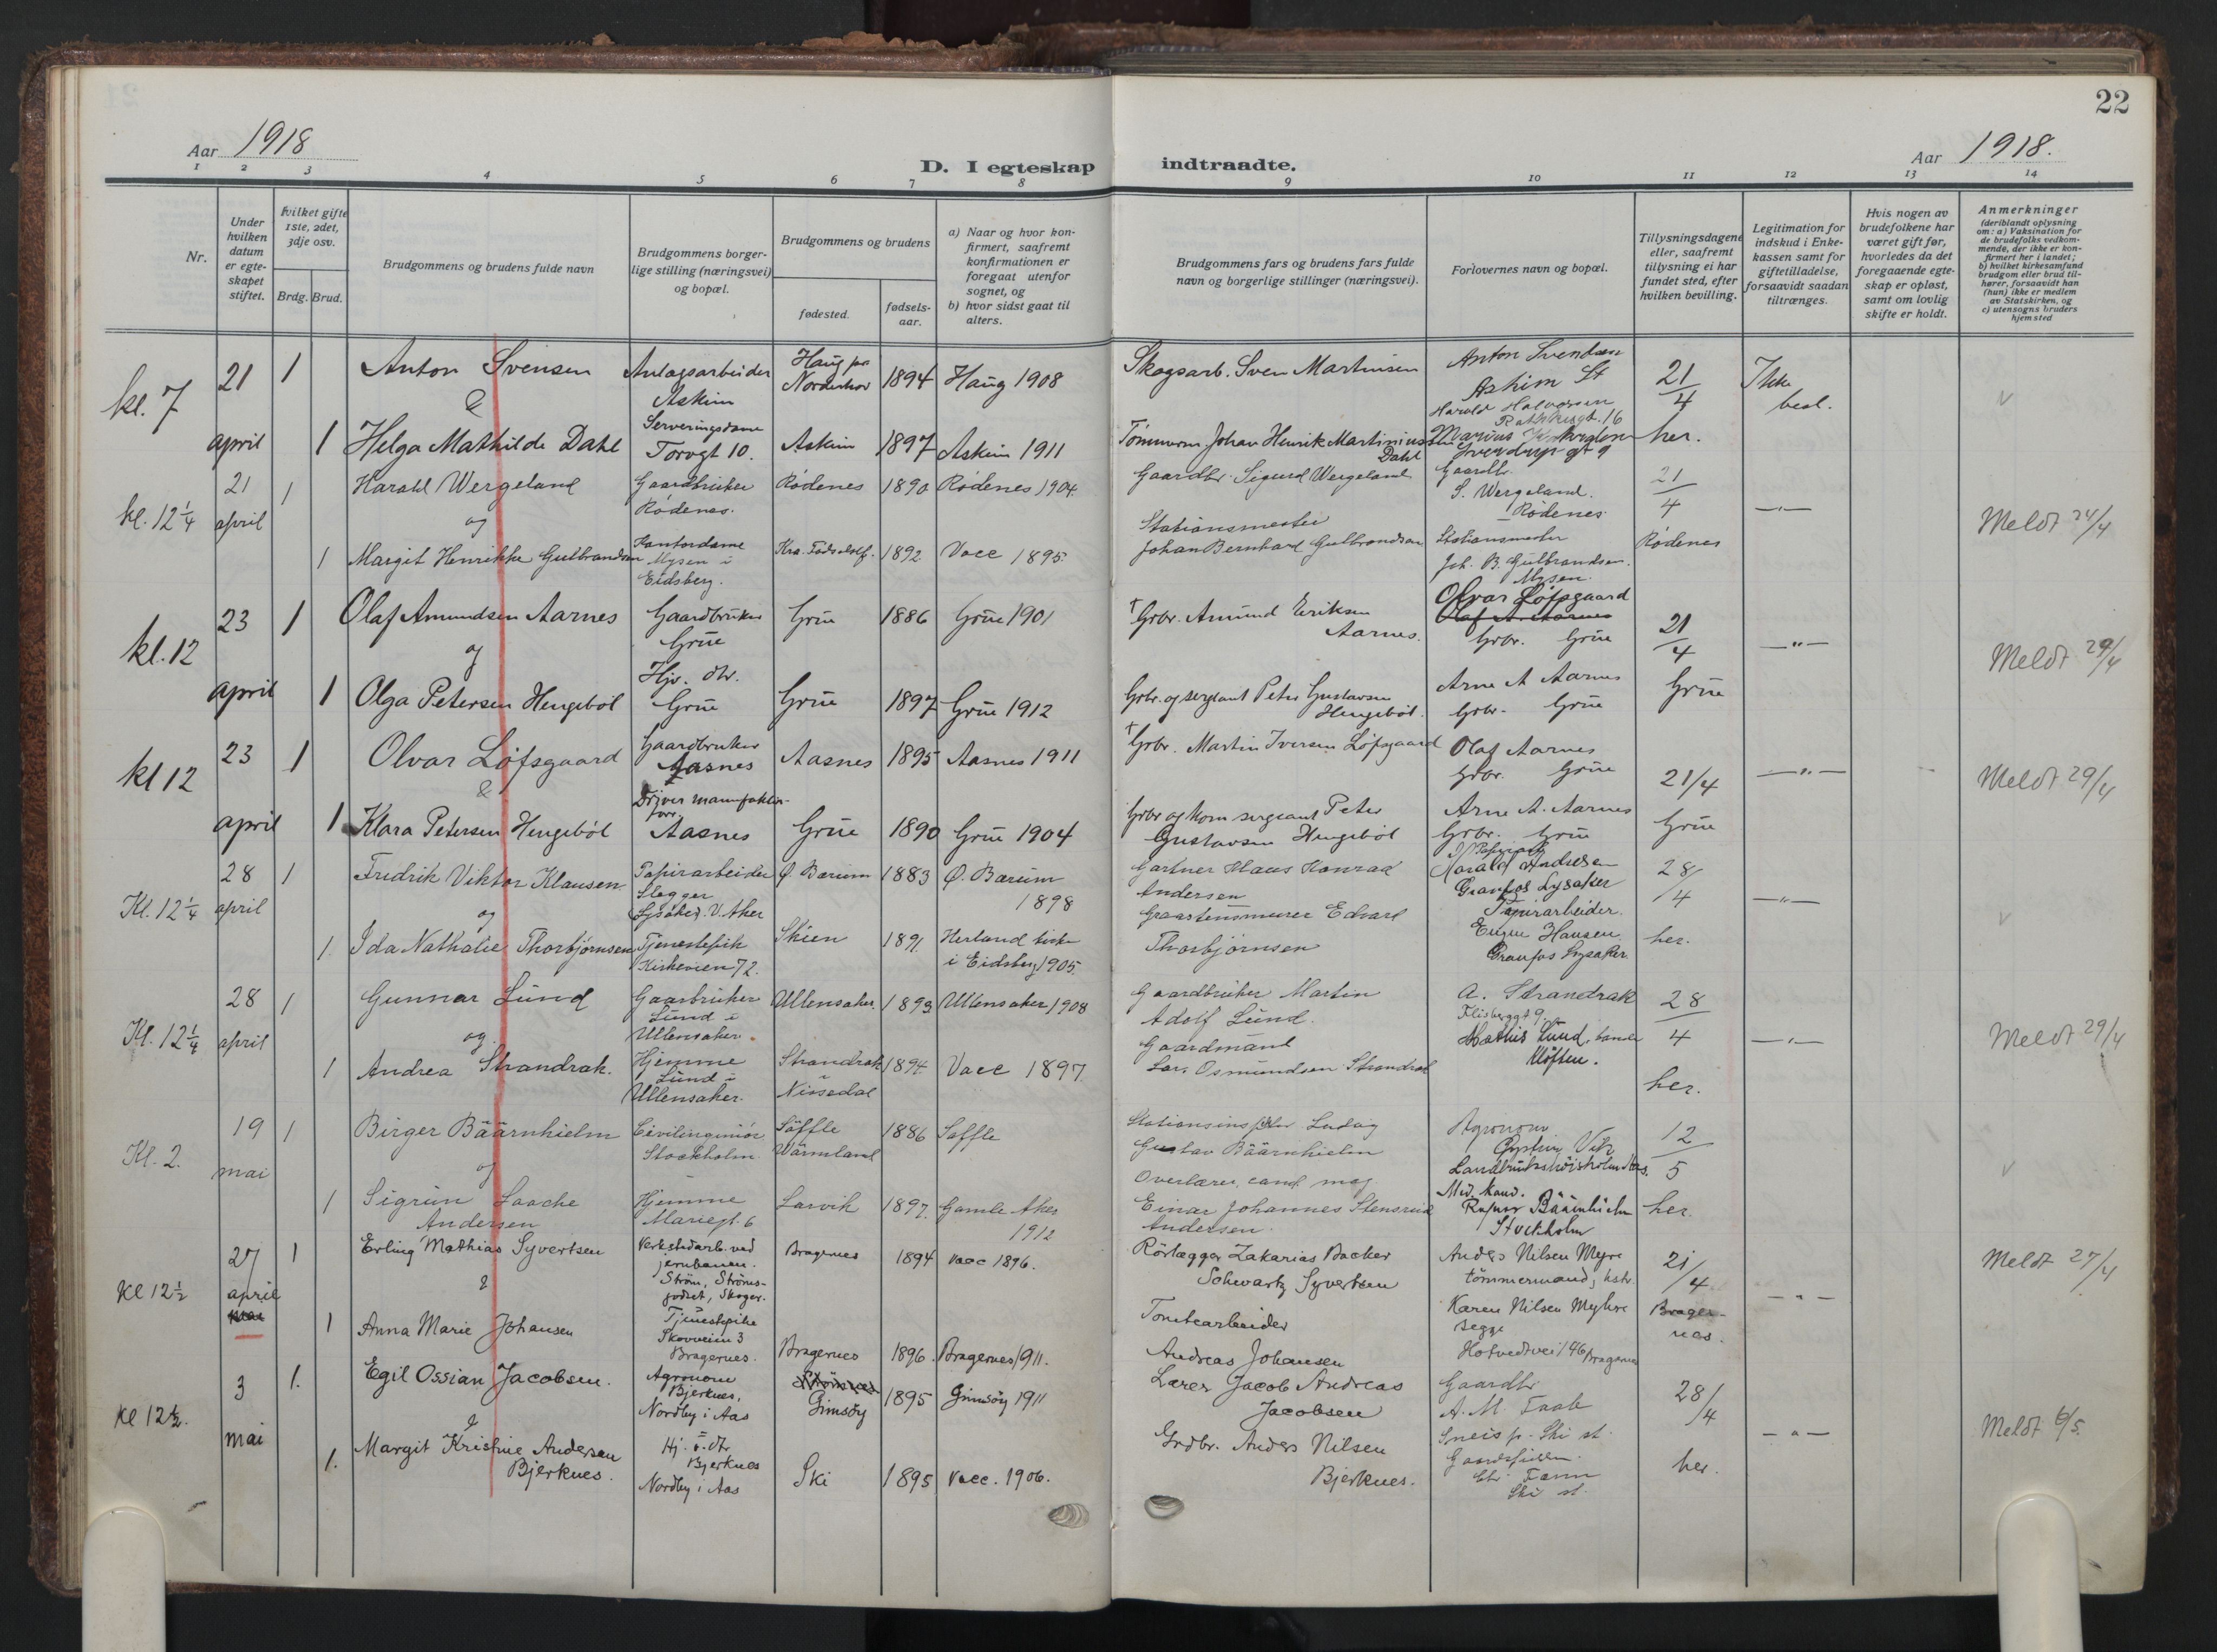 22
Aar 1918
D. I egteskap indtraadte.
Aar 1918.
1 2 3 4 5 6 7 8 9 10 11 12 13 14
Nr.
Under hvilken datum er egteskapet stiftet.
Hvilket gifte 1ste, 2det, 3dje osv.
Brdg. Brud.
Brudgommens og brudens fulde navn
Brudgommens borgerlige stilling (næringsvei) og bopæl.
Brudgommens og brudens
fødested.
fødselsaar.
a) Naar og hvor konfirmert, saafremt konfirmationen er foregaat utenfor sognet, og
b) hvor sidst gaat til alters.
Brudgommens fars og brudens fars fulde navn og borgerlige stillinger (næringsvei).
Forlovernes navn og bopæl.
Tillysningsdagene eller, saafremt tillysning ei har fundet sted, efter hvilken bevilling.
Legitimation for indskud i Enkekassen samt for giftetilladelse, forsaavidt saadan tiltrænges.
Hvis nogen av brudefolkene har været gift før, hvorledes da det foregaaende egteskap er opløst, samt om lovlig skifte er holdt.
Anmerkninger
(deriblandt oplysning om: a) Vaksination for de brudefolks vedkommende, der ikke er konfirmert her i landet; b) hvilket kirkesamfund brudgom eller brud tilhører, forsaavidt han (hun) ikke er medlem av Statskirken, og c) utensogns bruders hjemsted
kl. 7
21 april
1
Anton Svensen
&
Anlægsarbeider
Askim
Haug pr Norderhov
1894
Haug 1908
Skogsarb. Sven Martinsen
Anton Svendsen
Askim St
Harold Halvorsen
21/4
Ikke besl.
v
1
Helga Mathilde Dahl
Serveringsdame
Torvgt 10.
Askim
1897
Askim 1911
Tømmerm. Johan Henrik Martiniussen Dahl
her.
kl. 12 1/4
21 april
1
Harald Wergeland
og
Gaardbruker
Rødenes.
Rødenes
1890
Rødenes 1904.
Gaardbr. Sigurd Wergeland
Gaardbr.
S. Wergeland.
Rødenes
21/4
—"—
Meldt 24/4
1
Margit Henrikke Gulbrandsen
Kontordame
Mysen i
Eidsberg.
Kra. Fødselsst.
1892
Vacc 1895.
Stationsmester
Johan Bernhard Gulbrandsen
Stationsmester
Joh. B. Gulbrandsen.
Mysen.
Rødenes
kl. 12
23 april
1
Olaf Amundsen Aarnes
og
Gaardbruker
Grue
Grue
1886
Grue 1901
† Grbr. Amund Eriksen
Aarnes.
Olvar Løfsgaard
Olaf A. Aarnes
Grbr. Grue
21/4
—"—
Meldt 29/4
1
Olga Petersen Hengebøl
Hjv. dtr.
Grue
Grue
1897
Grue 1912
Grbr. og sergeant Peter Gustavsen
Hengebøl.
Arne A Aarnes
Grbr. Grue
Grue
kl 12
23 april
1
Olvar Løfsgaard
&
Gaardbruker
Aasnes
Aasnes
1895
Aasnes 1911
† Grbr. Martin Iversen Løfsgaard
Olaf Aarnes
Grbr. Grue
21/4
—"—
Meldt 29/4
1
Klara Petersen Hengebøl
Driver manufaktur-
forr.
Aasnes
Grue
1890
Grue 1904
Grbr og Kom sergeant Peter
Gustavsen Hengebøl
Arne A. Aarnes
Grbr. Grue
Grue
Kl. 12 1/4
28 april
1
Fredrik Viktor Klausen
og
Papirarbeider
Slegger
Lysaker. V. Aker
Ø. Bærum
1883
Ø. Bærum
1898
Gartner Hans Konrad
Andersen
Harald Andersen
Granfos Lysaker
28/4
—"—
v
1
Ida Nathalie Thorbjørnsen
Tjenestepik
Kirkeveien 72.
Skien
1891.
Herland kirke
i Eidsberg 1905.
Graastensmurer Edvard
Thorbjørnsen
Papirarbeider.
Eugen Hansen
Granfos Lysaker.
her.
Kl. 12 1/4
28 april
1
Gunnar Lund
og
Gaarbruker
Lund i
Ullensaker
Ullensaker.
1893
Ullensaker 1908
Gaardbruker Martin
Adolf Lund.
A. Strandrak
Flisberggt 9.
Mathis Lund,
Kløften.
28/4
—"—
Meldt 29/4
1
Andrea Strandrak.
Hjemme
Lund i
Ullensaker.
Strandrak
i
Nissedal
1894.
Vacc 1897.
Gaardmand
Lars Osmundsen Strandrak
her.
Kl. 2.
19 mai
1
Birger Bäärnhielm
og
Civilingeniør
Stockholm.
Säffle
Wärmland
1886
Säffle
Stationsinspektør Ludvig
Gustav Bäärnhielm
Agronom
Øystein Vik
Landbrukshøiskolen Aas.
12/5
v
1
Sigrun Laache
Andersen
Hjemme
Mariegt. 6
Larvik
1897.
Gamle Aker
1912
Overlærer, cand. mag.
Einar Johannes Stensrud
Andersen.
Med. kand.
Bäärnhielm
Stockholm
her.
Kl 12 1/2
27 april
mai
1
Erling Mathias Syvertsen
&
Verkstedarb. ved
jernbanen.
Strøm, Strøms-
godset, Skoger.
Bragernes
1894
vacc 1896.
Rørlægger Zakarias Backer
Schwartz Syvertsen
Anders Nilsen Myre
tømmermand,
21/4
—"—
Meldt 27/4
1
Anna Marie Johansen
Tjenestepike
Skovveien 3
Bragernes.
Bragernes
1896.
Bragernes 1911.
Tomtearbeider
Andreas Johansen
Karen Nilsen Myhre
begge
Hotvedtvei 196 Bragernes
Bragernes.
Kl 12 1/2.
3 mai
1.
Egil Ossian Jacobsen.
&
Agronom
Bjerknes,
Nordby i Aas
Gimsøy
1895
Gimsøy 1911
Lærer Jacob Andreas
Jacobsen
Gaardbr
A. M. Taab
Sneis p. Ski st.
28/4
—"—
Meldt 6/5.
1.
Margit Kristine Andersen
Bjerknes.
Hj. v. dtr
Bjerknes
Nordby i Aas
Ski
1895
vacc. 1906.
Grdbr. Anders Nilsen
Bjerknes.
Ski st.
her.